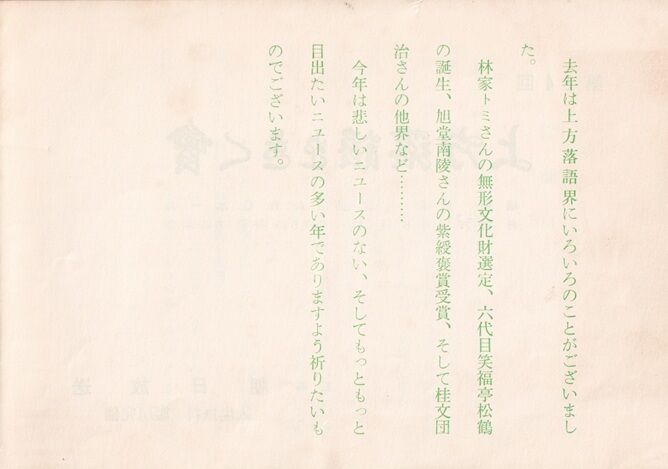 去年は上方落語界にいろいろのことがございまし
た。
林家トミさんの無形文化財選定、六代目笑福亭松鶴
の誕生、旭堂南陵さんの紫綬褒賞受賞、そして桂文団
治さんの他界など………
今年は悲しいニユースのない、そしてもっともっと
目出たいニユースの多い年でありますよう祈りたいも
のでございます。